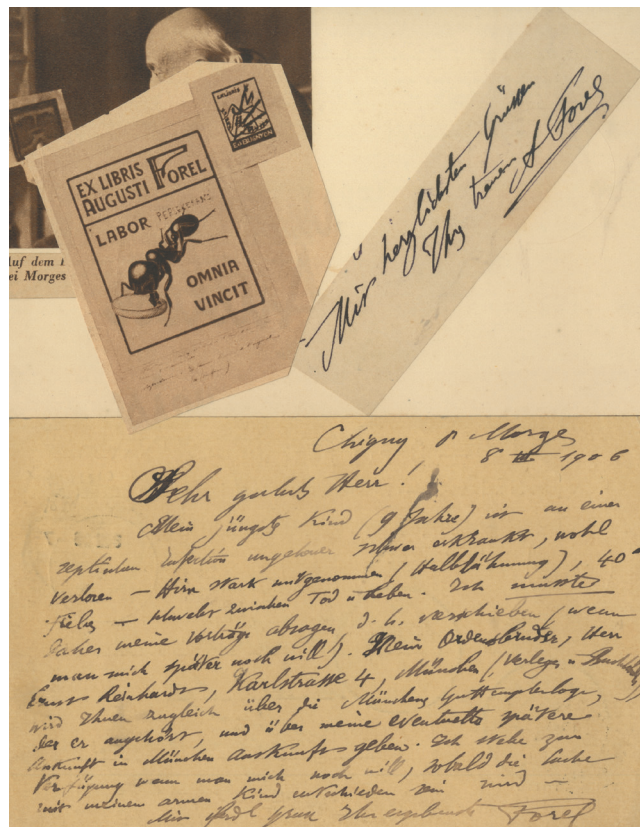 Auf dem
ei Morges
EX LIBRIS
AUGUSTI FOREL
LABOR
OMNIA
VINCIT
Mit herzlichsten Grüssen
Ihr treuer A Forel
Chigny p Morges
8 III 1906
Sehr geehrter Herr!
Mein jüngstes Kind (9 Jahre) ist an einer
septischen Infection ungeheuer schwer erkrankt, wohl
verloren – Hirn stark mitgenommen (Halblähmung), 40°
Fieber – schwebt zwischen Tod u Leben. Ich musste
daher meine Vorträge absagen d. h. verschieben (wenn
man mich später noch will). Mein Ordensbruder, Herr
Ernst Reinhardt, Karlstrasse 4, München (Verleger u
wird Ihnen zugleich über die Münchens Guttemplerloge,
der er angehört, und über meine eventuelle spätere
Ankunft in München Auskunft geben. Ich stehe zur
Verfügung wenn man mich noch will, sobald die Sache
mit meinem armen Kind entschieden sein wird –
Mit frdl Gruss Ihr ergebenster Forel